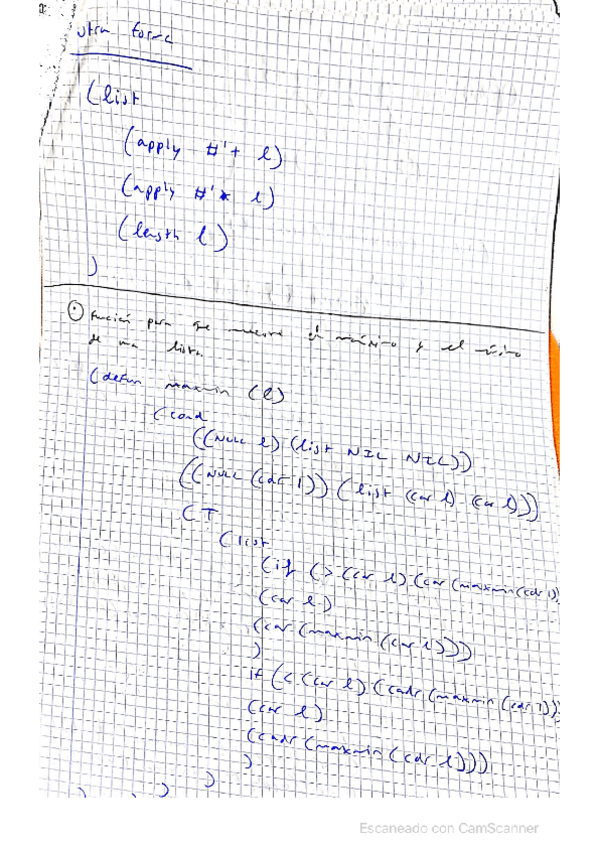 otra forma
(list
(apply #'+ l)
(apply #'* l)
(length l)
)
Función para que muestre el máximo y el mínimo
de una lista.
(defun maxmin (l)
(cond
((NULL l) (list NIL NIL))
((NULL (cdr l)) (list (car l) (car l)))
(T
(list
(if (> (car l) (car (maxmin (cdr l))
(car l)
(car (maxmin (cdr l)))
)
if (< (car l) (cadr (maxmin (cdr l)))
(car l)
(cadr (maxmin (cdr l)))
)
)
) ) )
Escaneado con CamScanner